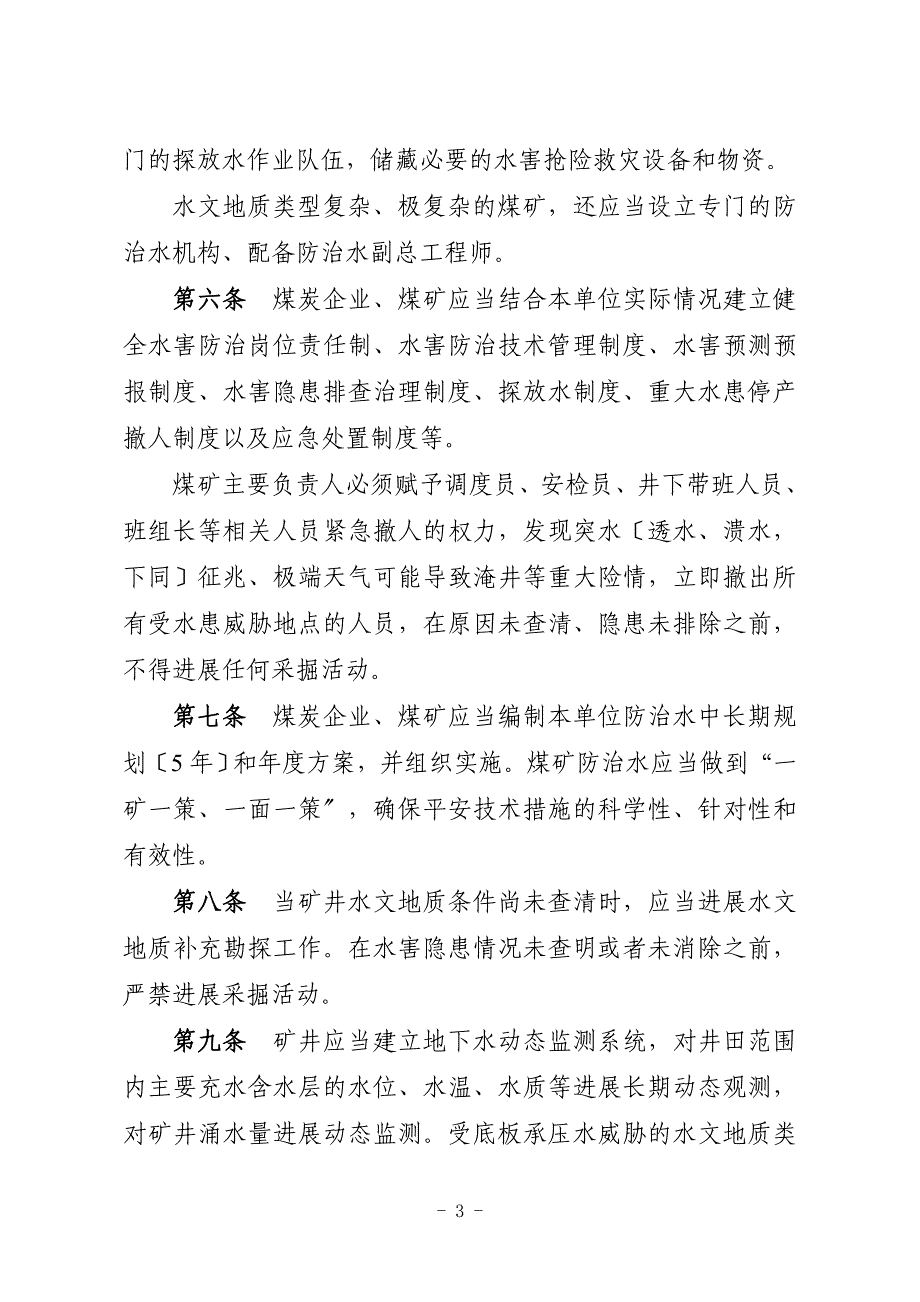 门的探放水作业队伍，储藏必要的水害抢险救灾设备和物资。
水文地质类型复杂、极复杂的煤矿，还应当设立专门的防
治水机构、配备防治水副总工程师。
第六条　煤炭企业、煤矿应当结合本单位实际情况建立健
全水害防治岗位责任制、水害防治技术管理制度、水害预测预
报制度、水害隐患排查治理制度、探放水制度、重大水患停产
撤人制度以及应急处置制度等。
煤矿主要负责人必须赋予调度员、安检员、井下带班人员、
班组长等相关人员紧急撤人的权力，发现突水〔透水、溃水，
下同〕征兆、极端天气可能导致淹井等重大险情，立即撤出所
有受水患威胁地点的人员，在原因未查清、隐患未排除之前，
不得进展任何采掘活动。
第七条　煤炭企业、煤矿应当编制本单位防治水中长期规
划〔5 年〕和年度方案，并组织实施。煤矿防治水应当做到“一
矿一策、一面一策〞，确保平安技术措施的科学性、针对性和
有效性。
第八条　当矿井水文地质条件尚未查清时，应当进展水文
地质补充勘探工作。在水害隐患情况未查明或者未消除之前，
严禁进展采掘活动。
第九条　矿井应当建立地下水动态监测系统，对井田范围
内主要充水含水层的水位、水温、水质等进展长期动态观测，
对矿井涌水量进展动态监测。受底板承压水威胁的水文地质类
- 3 -